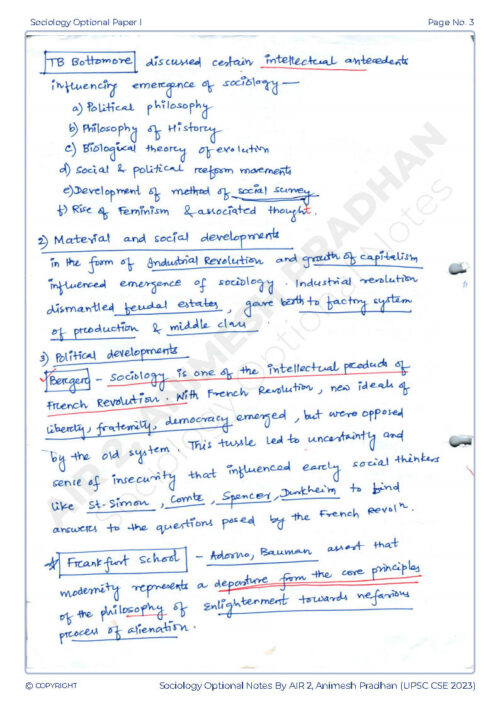 Sociology Optional Paper I
Page No. 3
TB Bottomore discussed certain intellectual antecedents
influencing emergence of sociology —
a) Political philosophy
b) Philosophy of History
c) Biological theory of evolution
d) Social & political reform movements
e) Development of method of social survey
f) Rise of Feminism & associated thought.
2) Material and social developments
in the form of Industrial Revolution and growth of capitalism
influenced emergence of sociology. Industrial revolution
dismantled feudal estates, gave birth to factory system
of production & middle class.
3) Political developments
Berger - Sociology is one of the intellectual products of
French Revolution. With French Revolution, new ideals of
liberty, fraternity, democracy emerged, but were opposed
by the old system. This tussle led to uncertainty and
sense of insecurity that influenced early social thinkers
like St-Simon, Comte, Spencer, Durkheim to find
answers to the questions posed by the French Revolⁿ.
Frankfurt School - Adorno, Bauman assert that
modernity represents a departure from the core principles
of the philosophy of Enlightenment towards nefarious
process of alienation.
AIR 2, ANIMESH PRADHAN
Sociology Optional Notes
© COPYRIGHT
Sociology Optional Notes By AIR 2, Animesh Pradhan (UPSC CSE 2023)